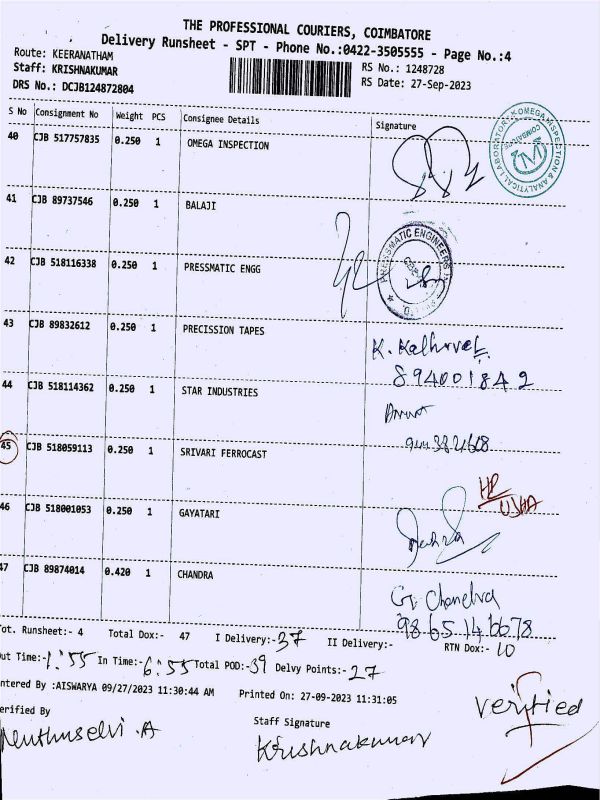 THE PROFESSIONAL COURIERS, COIMBATORE
Delivery Runsheet - SPT - Phone No.:0422-3505555 - Page No.:4
Route: KEERANATHAM
Staff: KRISHNAKUMAR
DRS No.: DCJB124872804
RS No.: 1248728
RS Date: 27-Sep-2023
S No Consignment No Weight PCS Consignee Details Signature
40 CJB 517757835 0.250 1 OMEGA INSPECTION
41 CJB 89737546 0.250 1 BALAJI
PRESSMATIC ENGINEERS
42 CJB 518116338 0.250 1 PRESSMATIC ENGG
43 CJB 89832612 0.250 1 PRECISSION TAPES
K.
894001842
44 CJB 518114362 0.250 1 STAR INDUSTRIES
45 CJB 518059113 0.250 1 SRIVARI FERROCAST
USHA
46 CJB 518001053 0.250 1 GAYATARI
47 CJB 89874014 0.420 1 CHANDRA
G. Chandra
98 65 14 6678
Tot. Runsheet:- 4 Total Dox:- 47 I Delivery:- 37 II Delivery:- RTN Dox:- 10
Out Time:- 1:55 In Time:- 6:55 Total POD:- 39 Delvy Points:- 27
Entered By :AISWARYA 09/27/2023 11:30:44 AM Printed On: 27-09-2023 11:31:05
Verified By Staff Signature
Muthuselvi .A Krishnakumar
verified